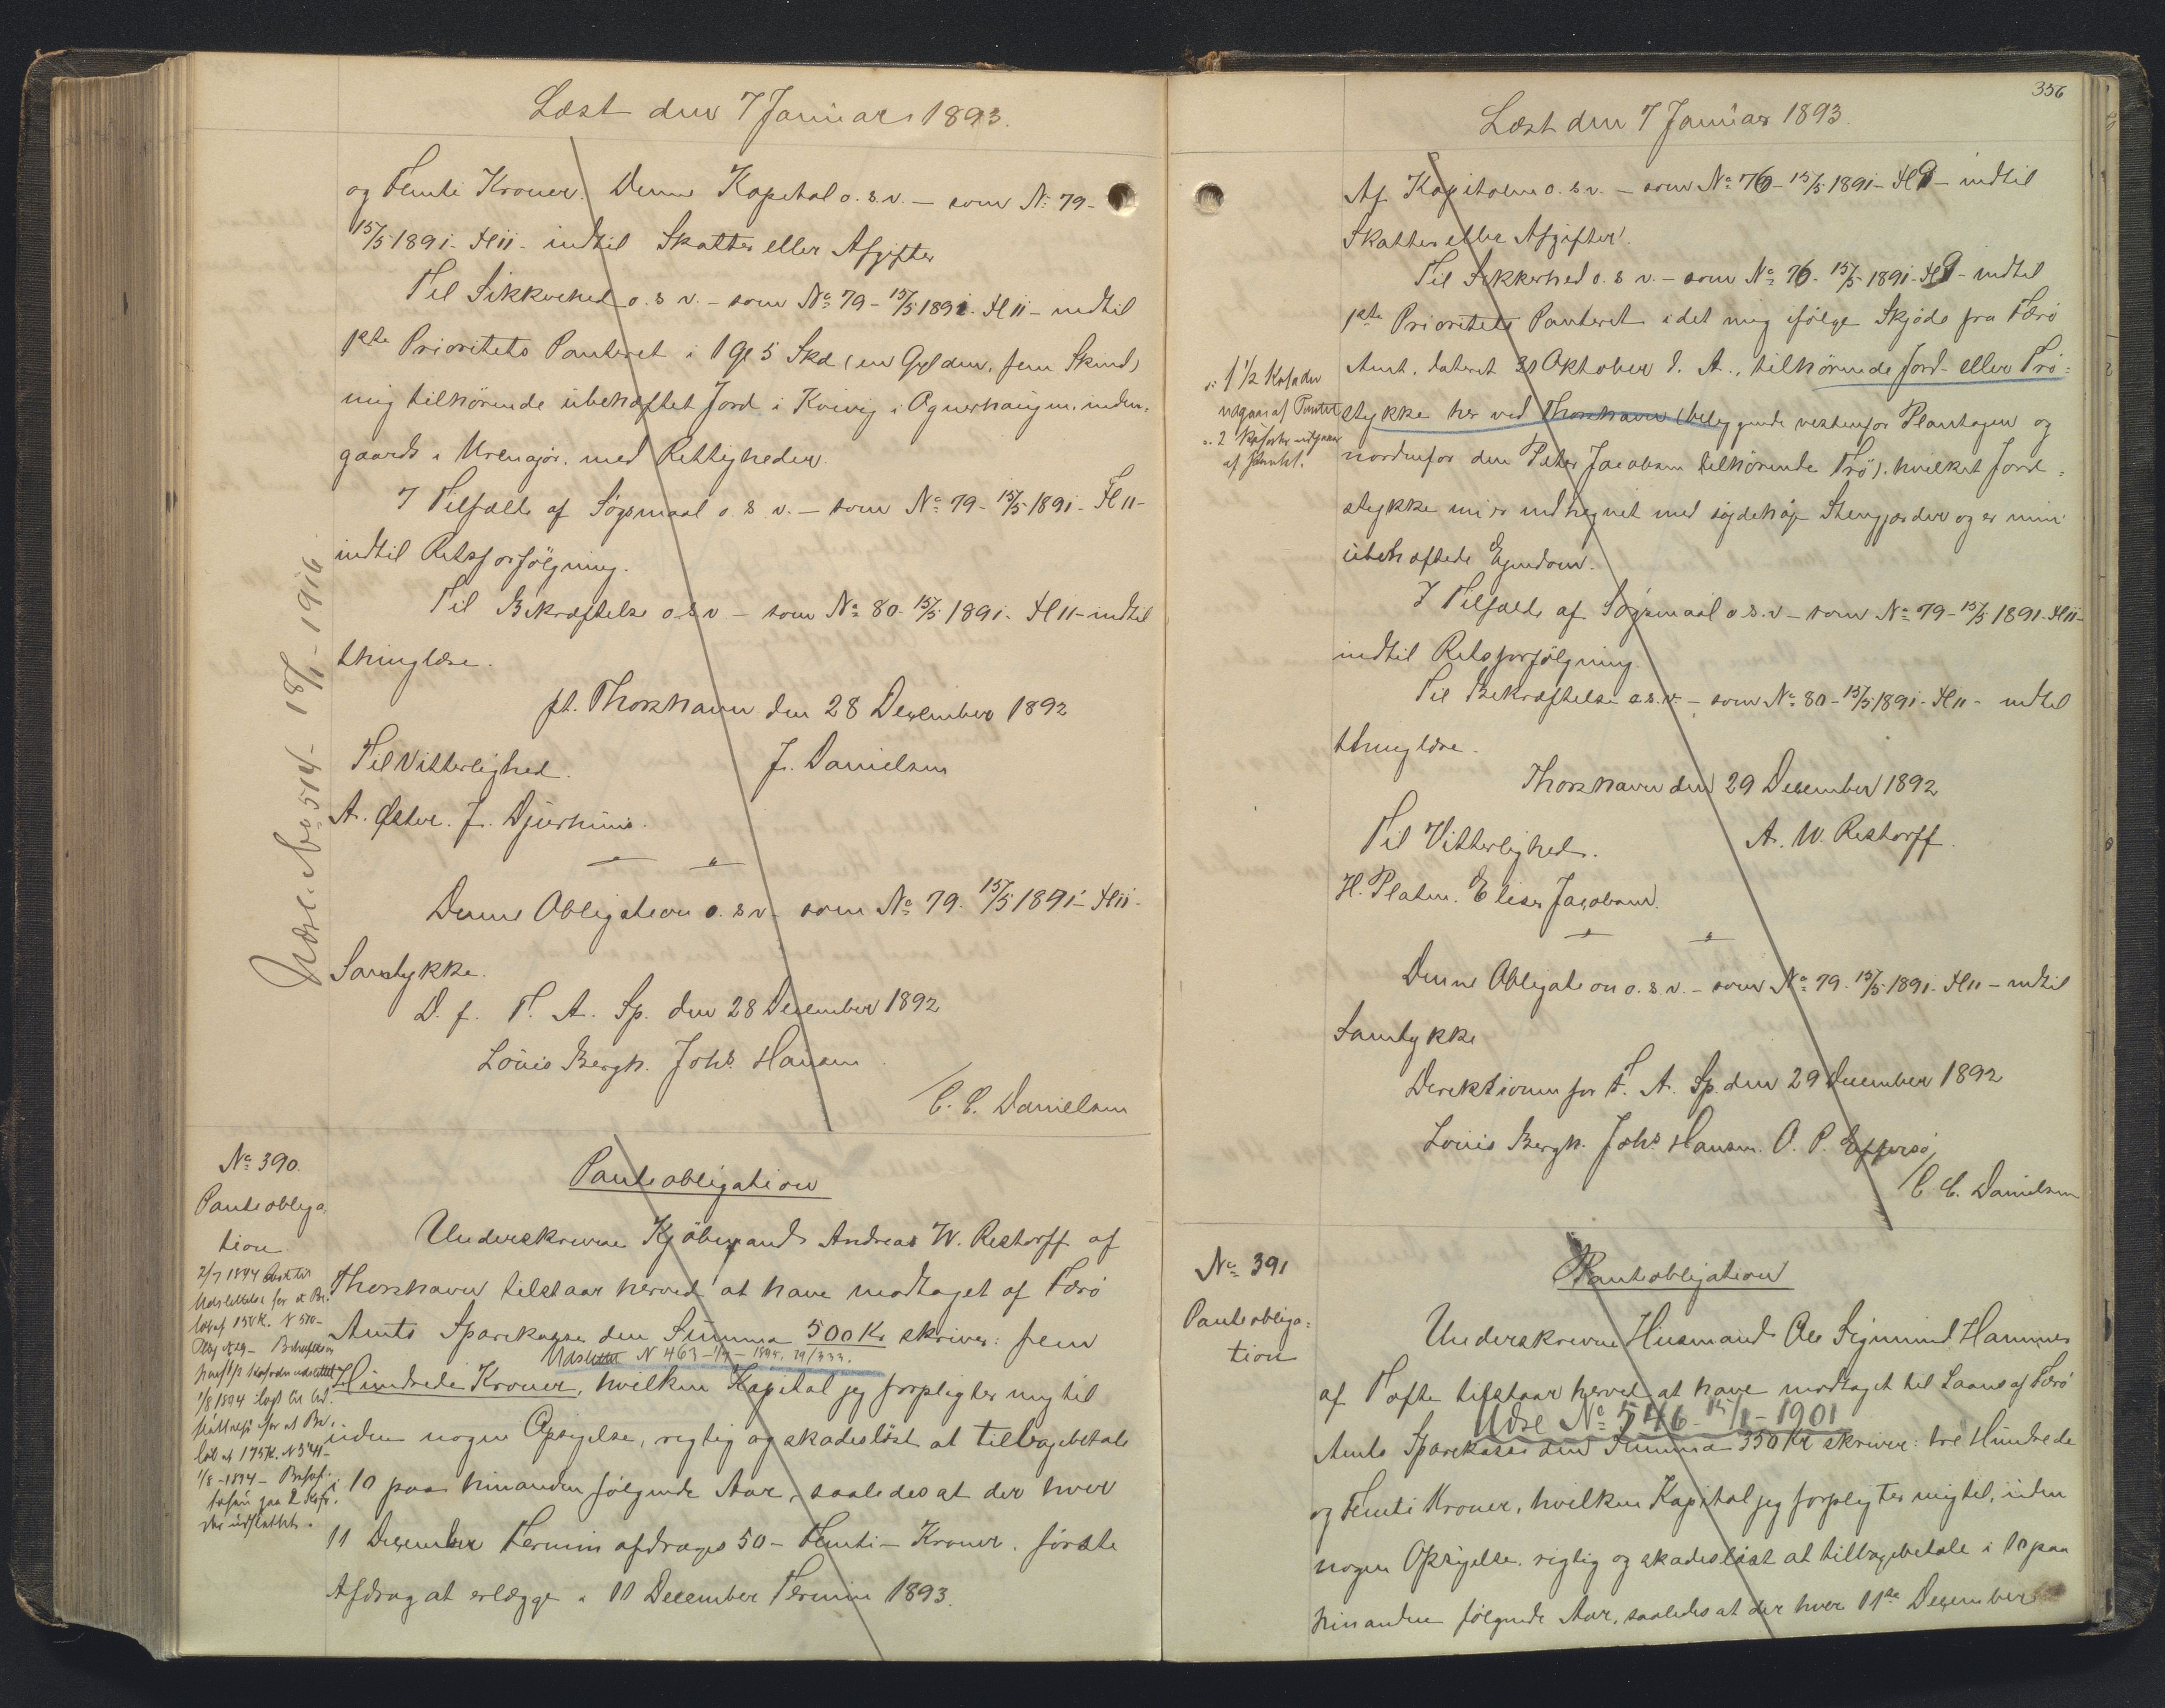 Læst den 7 Januar 1893.
og Femti Kroner. Denne Kapital o. s. v. — som No 79 -
15/5 1891 - H 11 - indtil Skatter eller Afgifter
Til Sikkerhed o. s. v. - som No 79 - 15/5 1891 - H 11 - indtil
1ste Prioritets Panteret i 1 Gl 5 Skd (en Gylden, fem Skind)
mig tilhørende ubehæftet Jord i Kvivig i
gaards i med Rettigheder.
I Tilfælde af Søgsmaal o. s. v. — som No 79 - 15/5 1891 - H 11 -
indtil Retsforfølgning.
Til Bekræftelse o. s. v - som No 80 - 15/5 1891 - H 11 - indtil
thinglæse.
pt. Thorshavn den 28 December 1892
Til Vitterlighed. J. Danielsen
A. Øster. J. Djurhuus.
Denne Obligation o. s. v - som No 79. 15/5 1891 - H 11 -
Samtykke.
D. f. F. A. Sp. den 28 December 1892
Louis Bergh. Johs Hansen
C. C. Danielsen
Udsl. No 514 - 18/1 - 1916
No 390.
Panteobliga-
tion
2/7 1894
Udslettelse for et Be-
Panteobligation
Underskrevne Kjøbmand Andreas W. Restorff af
Thorshavn tilstaar herved at have modtaget af Færø
Amts Sparekasse den Summa 500 Kr skriver: fem
Udslettet N 463 - 1/7 - 1895, 29/333.
Hundrede Kroner, hvilken Kapital jeg forpligter mig til
uden nogen Opsigelse, rigtig og skadesløst at tilbagebetale
i 10 paa hinanden følgende Aar, saaledes at der hver
11 December Termin afdrages 50 - Femti - Kroner. første
Afdrag at erlægge i 11 December Termin 1893.
356
Læst den 7 Januar 1893.
Af Kapitalen o. s. v. — som No 76 - 15/5 1891 - H 9 - indtil
Skatter eller Afgifter.
Til Sikkerhed o. s. v. - som No 76 - 15/5 1891 - H 9 - indtil
1ste Prioritets Panteret i det mig ifølge Skjøde fra Færø
Amt, dateret 31 Oktober d. A., tilhørende Jord- eller Trø-
stykke her ved Thorshavn (beliggende vestenfor Plantagen og
nordenfor den Peter Jacobsen tilhørende Trø), hvilket Jord-
stykke nu er indhegnet med Stengjærder og er min
ubehæftede Ejendom.
1 1/2
udgaar af Pantet
2 udgaar
af Pantet.
I Tilfælde af Søgsmaal o. s. v - som No 79 - 15/5 1891 - H 11 -
indtil Retsforfølgning.
Til Bekræftelse o. s. v. - som No 80 - 15/5 1891 - H 11 - indtil
thinglæse.
Thorshavn den 29 December 1892
Til Vitterlighed. A. W. Restorff.
H. Platen. Elias Jacobsen.
Denne Obligation o. s. v. - som No 79. 15/5 1891 - H 11 - indtil
Samtykke
Direktionen for F. A. Sp. den 29 December 1892
Louis Bergh. Johs Hansen. O. P. Effersø
C. C. Danielsen
No 391
Panteobliga-
tion
Panteobligation
Underskrevne Husmand Ole Sigmund Hammer
af Tofte tilstaar herved at have modtaget til Laans af Færø
Udsl No 546 - 15/1 - 1901
Amts Sparekasse den Summa 350 Kr skriver: tre Hundrede
og Femti Kroner, hvilken Kapital jeg forpligter mig til, uden
nogen Opsigelse, rigtig og skadesløst at tilbagebetale i 10 paa
hinanden følgende Aar, saaledes at der hver 11te December